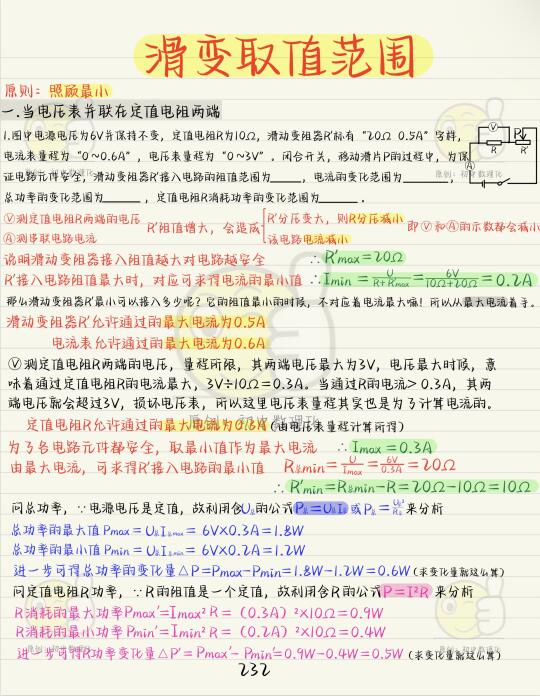 滑变取值范围
原则：照顾最小
一.当电压表并联在定值电阻两端
1.图中电源电压为6V并保持不变，定值电阻R为10Ω，滑动变阻器R'标有“20Ω 0.5A”字样，
电流表量程为“0~0.6A”，电压表量程为“0~3V”。闭合开关，移动滑片P的过程中，为保
证电路元件安全，滑动变阻器R'接入电路的阻值范围为____，电流的变化范围为____，
总功率的变化范围为____，定值电阻R消耗功率的变化范围为____.
V
P
R
R'
A
Ⓥ测定值电阻R两端的电压
Ⓐ测串联电路电流
R'阻值增大，会造成
R'分压变大，则R分压减小
该电路电流减小
即Ⓥ和Ⓐ的示数都会减小
说明滑动变阻器接入阻值越大对电路越安全 ∴R'max=20Ω
R'接入电路阻值最大时，对应可求得电流的最小值 ∴Imin=U/(R+Rmax)=6V/(10Ω+20Ω)=0.2A
那么滑动变阻器R'最小可以接入多少呢？它的阻值最小的时候，不对应着电流最大嘛！所以从最大电流着手。
滑动变阻器R'允许通过的最大电流为0.5A
电流表允许通过的最大电流为0.6A
Ⓥ测定值电阻R两端的电压，量程所限，其两端电压最大为3V，电压最大时候，意
味着通过定值电阻R的电流最大，3V÷10Ω=0.3A。当通过R的电流>0.3A，其两
端电压就会超过3V，损坏电压表，所以这里电压表量程其实也是为了计算电流的。
定值电阻R允许通过的最大电流为0.3A（由电压表量程计算所得）
为了各电路元件都安全，取最小值作为最大电流 ∴Imax=0.3A
由最大电流，可求得R'接入电路的最小值 R总min=U/Imax=6V/0.3A=20Ω
∴R'min=R总min-R=20Ω-10Ω=10Ω
问总功率，∵电源电压是定值，故利用含U总的公式P总=U总I总或P总=U总²/R总来分析
总功率的最大值Pmax=U总I总max=6V×0.3A=1.8W
总功率的最小值Pmin=U总I总min=6V×0.2A=1.2W
进一步可得总功率的变化量△P=Pmax-Pmin=1.8W-1.2W=0.6W（求变化量就这么算）
问定值电阻R功率，∵R的阻值是一个定值，故利用含R的公式P=I²R来分析
R消耗的最大功率Pmax'=Imax²R=（0.3A）²×10Ω=0.9W
R消耗的最小功率Pmin'=Imin²R=（0.2A）²×10Ω=0.4W
进一步可得R功率变化量△P'=Pmax'-Pmin'=0.9W-0.4W=0.5W（求变化量就这么算）
232